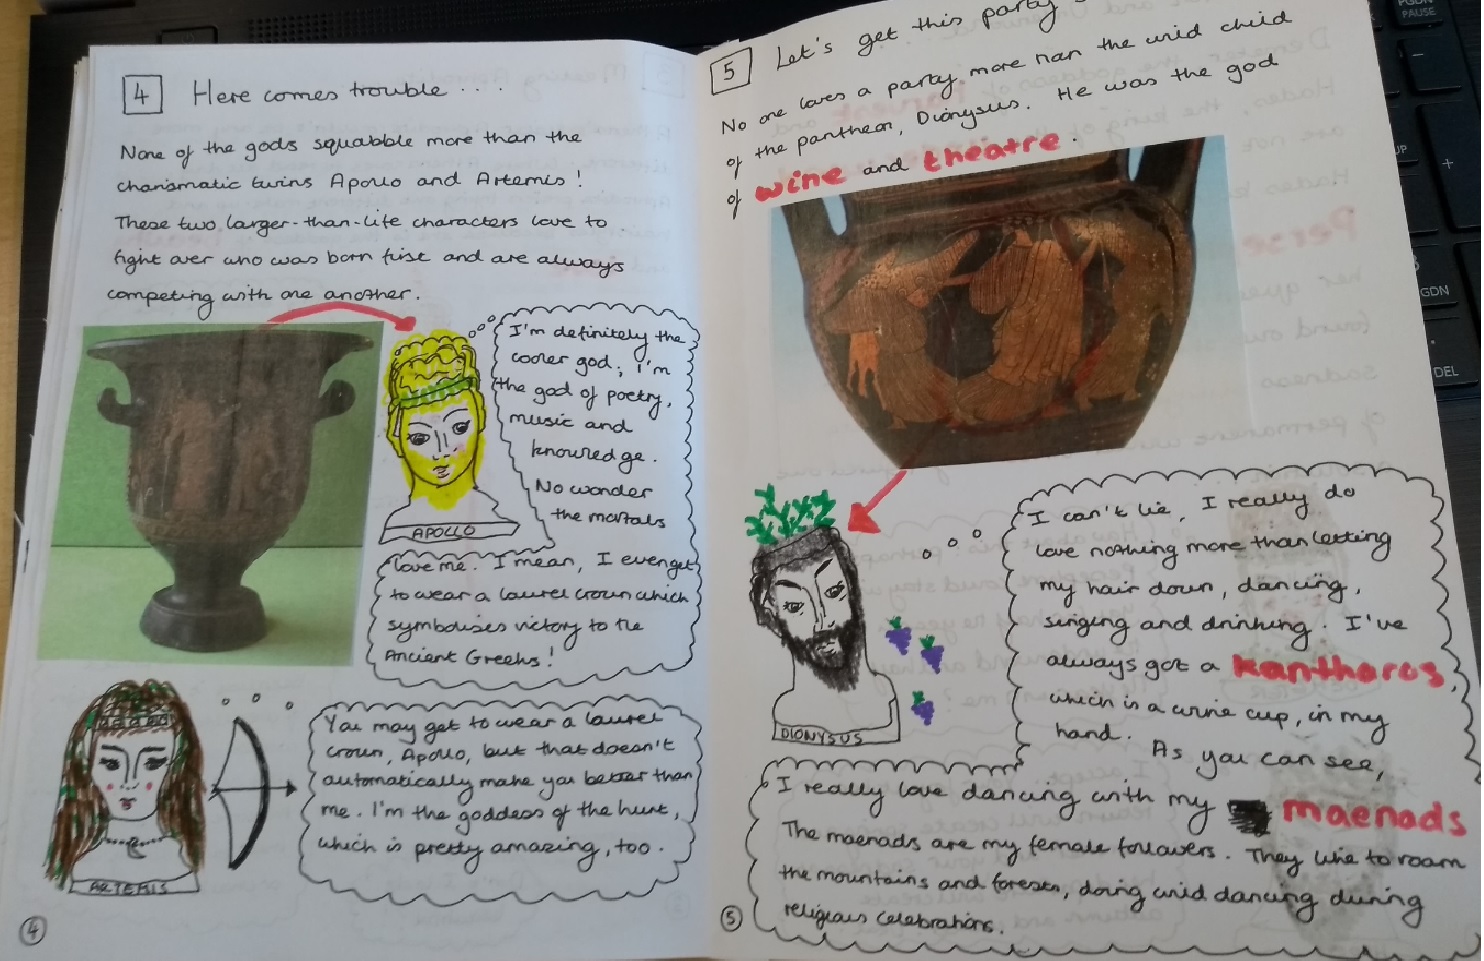 4 Here comes trouble ...
None of the gods squabble more than the
charismatic twins Apollo and Artemis!
These two larger-than-life characters love to
fight over who was born first and are always
competing with one another.
I'm definitely the
cooler god; I'm
the god of poetry,
music and
knowledge.
No wonder
the mortals
love me. I mean, I even get
to wear a laurel crown which
symbolises victory to the
Ancient Greeks!
APOLLO
You may get to wear a laurel
crown, Apollo, but that doesn't
automatically make you better than
me. I'm the goddess of the hunt,
which is pretty amazing, too.
ARTEMIS
4
5 Let's get this party
No one loves a party more than the wild child
of the pantheon, Dionysus. He was the god
of wine and theatre.
I can't lie, I really do
love nothing more than letting
my hair down, dancing,
singing and drinking. I've
always got a kantharos,
which is a wine cup, in my
hand. As you can see,
I really love dancing with my maenads
The maenads are my female followers. They like to roam
the mountains and forests, doing wild dancing during
religious celebrations.
DIONYSUS
5
PAUSE
PGDN
DEL
+